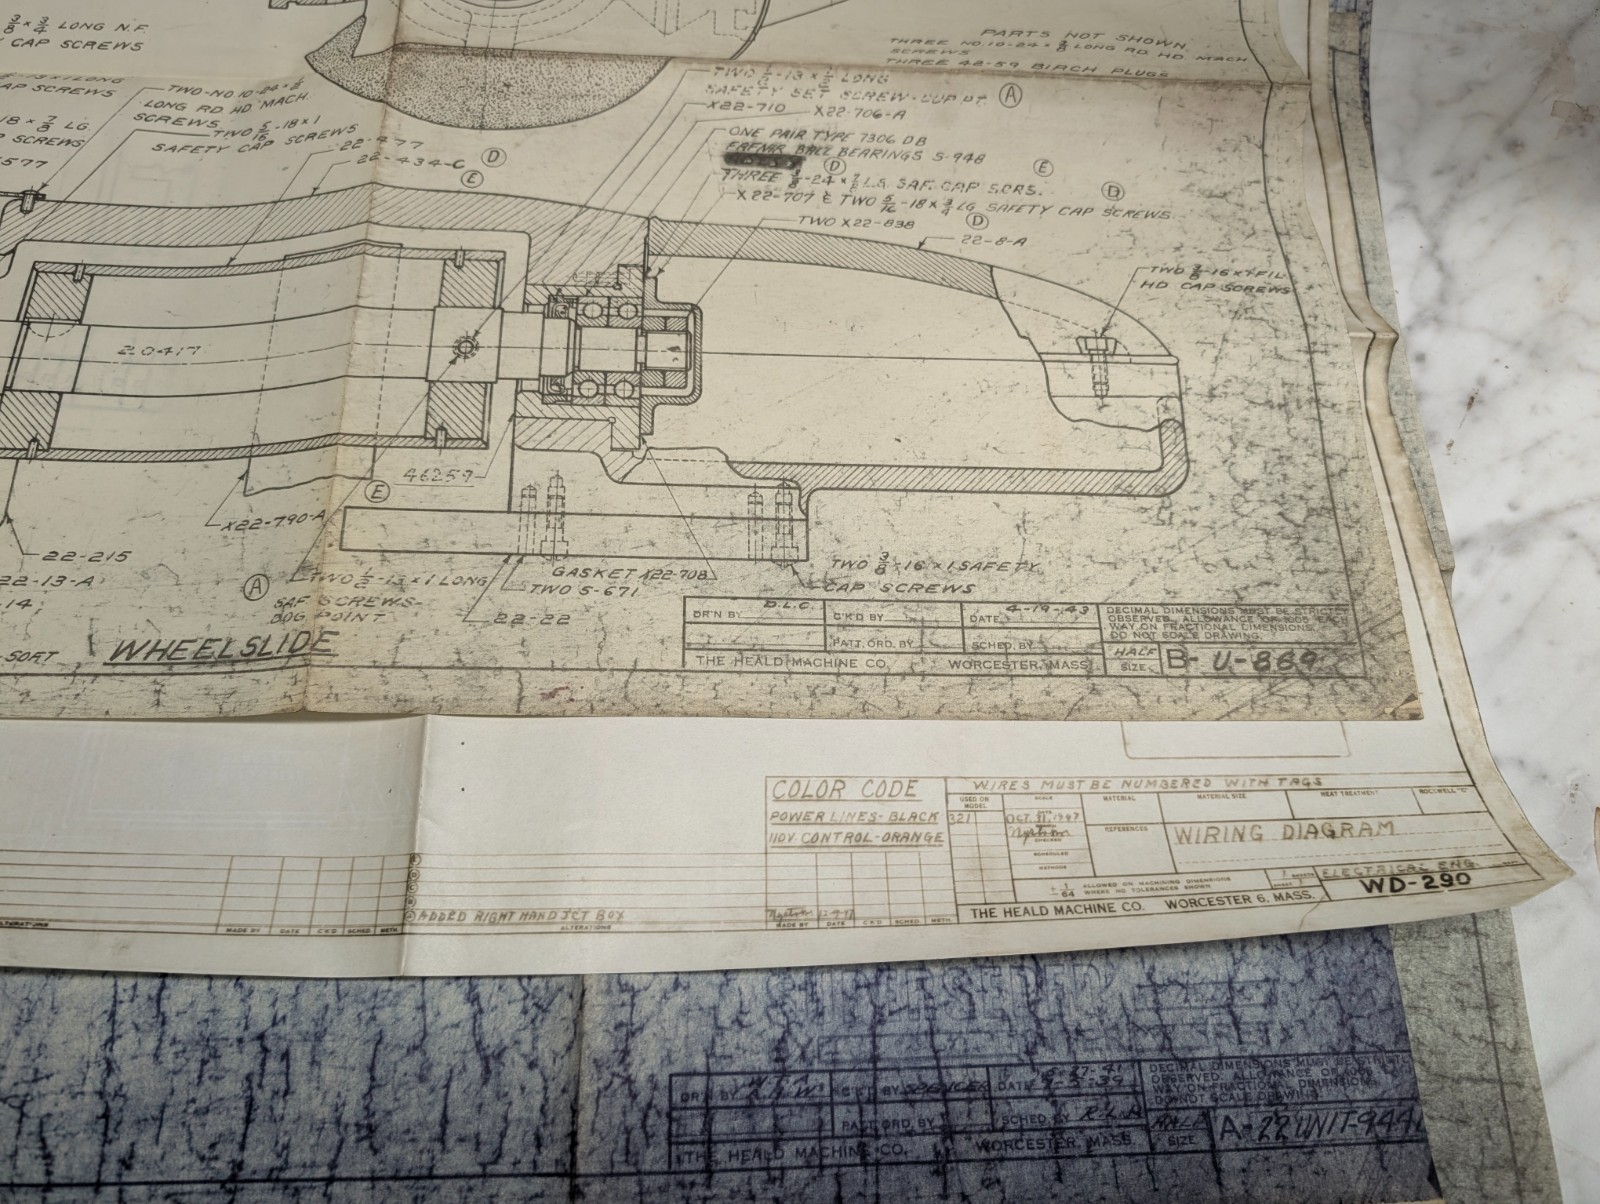 3/8 × 3/4 LONG N.F.
CAP SCREWS
PARTS NOT SHOWN
THREE NO.10-24 × LONG RD HD MACH
SCREWS
THREE 42-59 BIRCH PLUGS
LONG
CAP SCREWS
TWO-NO 10-24 × 1/2
LONG RD HD MACH.
SCREWS
TWO 5/16 -18 × 1
SAFETY CAP SCREWS
18 × 7/8 LG
SCREWS
577
22-477
22-434-C
D
E
TWO 1/2 -13 × 1/2 LONG
SAFETY SET SCREW-CUP PT.
A
X22-710
X22-706-A
ONE PAIR TYPE 7306 DB
FAFNIR BALL BEARINGS S-948
D
E
THREE 3/8 -24 × 7/8 LG SAF. CAP SCRS.
D
X22-707 & TWO 5/16 -18 × 3/4 LG SAFETY CAP SCREWS
TWO X22-838
D
22-8-A
TWO 3/8 -16 × 1 FIL
HD CAP SCREWS
20417
46259
E
X22-790-A
22-215
22-13-A
14
A
TWO 1/2 -13 × 1 LONG
SAF SCREWS-
DOG POINT
GASKET X22-708
TWO S-671
22-22
TWO 3/8 -16 × 1 SAFETY
CAP SCREWS
SOFT
WHEELSLIDE
DR'N BY D.L.C.
C'K'D BY
DATE 4-19-43
PATT. ORD. BY
SCHED. BY
DECIMAL DIMENSIONS MUST BE STRICTLY
OBSERVED. ALLOWANCE OF .005 EACH
WAY ON FRACTIONAL DIMENSIONS.
DO NOT SCALE DRAWING.
THE HEALD MACHINE CO.
WORCESTER, MASS.
HALF
SIZE
B-U-869
COLOR CODE
POWER LINES-BLACK
110V. CONTROL-ORANGE
WIRES MUST BE NUMBERED WITH TAGS
USED ON
MODEL
321
SCALE
OCT. 1947
Nystrom
CHECKED
SCHEDULED
METHODS
MATERIAL
REFERENCES
MATERIAL SIZE
HEAT TREATMENT
ROCKWELL "C"
WIRING DIAGRAM
± 1/64 ALLOWED ON MACHINING DIMENSIONS
WHERE NO TOLERANCES SHOWN
ELECTRICAL ENG.
WD-290
THE HEALD MACHINE CO. WORCESTER 6, MASS.
ALTERATIONS
MADE BY
DATE
C'K'D
SCHED.
METH.
ADDED RIGHT HAND JCT BOX
ALTERATIONS
Nystrom
MADE BY
DATE
C'K'D
SCHED.
METH.
DR'N BY
C'K'D BY SPENCER
DATE
DECIMAL DIMENSIONS MUST BE STRICTLY
OBSERVED. ALLOWANCE OF .005 EACH
WAY ON FRACTIONAL DIMENSIONS.
DO NOT SCALE DRAWING.
PATT. ORD. BY
SCHED. BY
THE HEALD MACHINE CO.
WORCESTER, MASS.
HALF
SIZE
A-22 UNIT-944